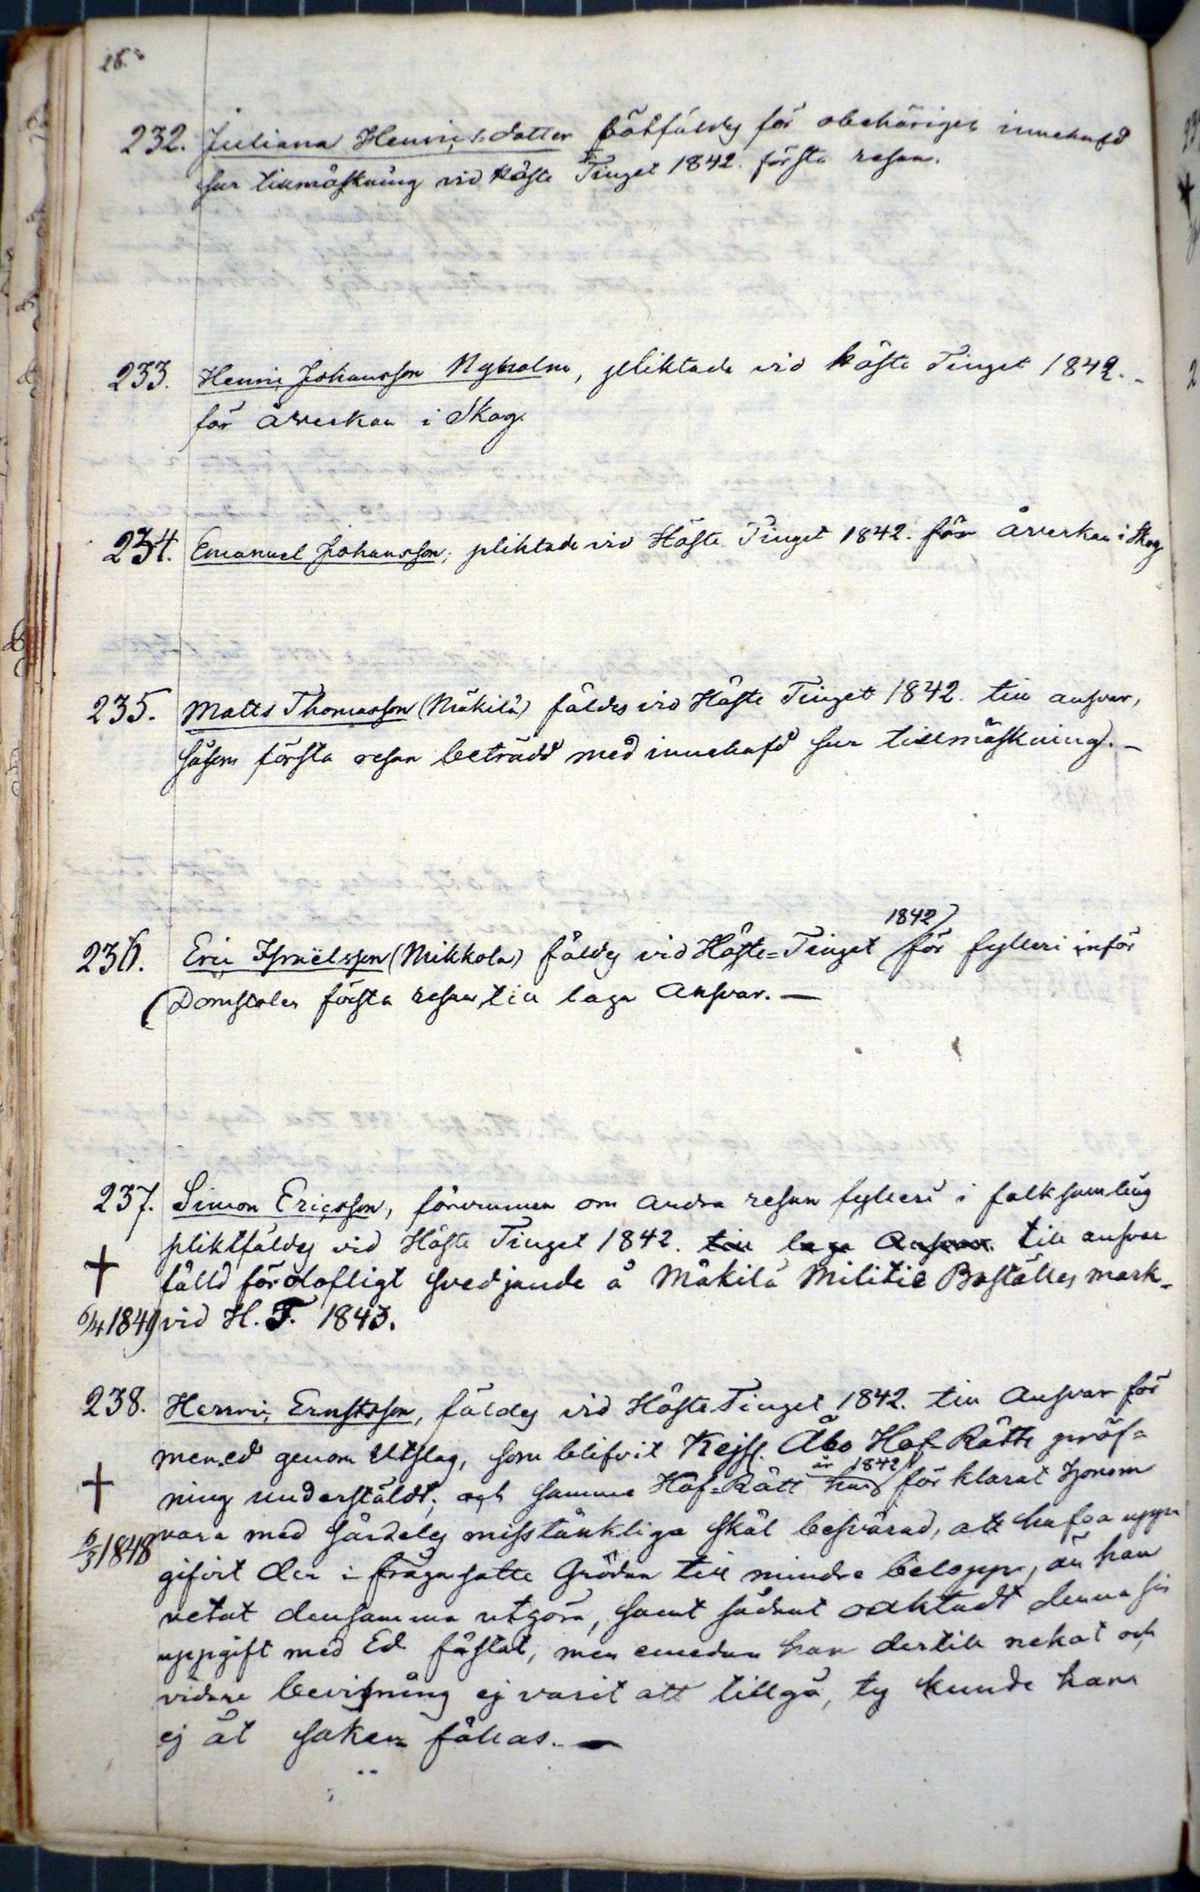 232. Juliana Henricsdotter bötfäldes för obehörigen innehafd
sur tillmäskning vid Höste Tinget 1842. första resan.
233. Henric Johansson Nyholm, pliktade vid Höste Tinget 1842. -
för åverkan i Skog.
234. Emanuel Johansson, pliktade vid Höste Tinget 1842. för åverkan i Skog
235. Matts Thomasson (Mäkilä) fäldes vid Höste Tinget 1842. till ansvar,
såsom första resan beträdd med innehafd sur tillmäskning. -
1842
236. Eric Israëlsson (Mikkola) fäldes vid Höste=Tinget för fylleri inför
Domstolen första resan, till laga Ansvar. —
237. Simon Ericsson, förvunnen om andra resan fylleri i folksamling
pliktfäldes vid Höste Tinget 1842. till laga Ansvar. till ansvar
† fälld för olofligt svedjande å Mäkilä Militie Boställes mark -
6/4 1849 vid H. T. 1843.
238. Henric Ernstsson, fäldes vid Höste Tinget 1842. till Ansvar för
mened genom Utslag, som blifvit Kejs. Åbo Hof-Rätts pröf=
är 1842
† ning underställdt; och samma Hof=Rätt har förklarat honom
3/3 1848 vara med särdeles misstänkliga skäl besvärad, att hafva upp
gifvit den i fråga satte Gröden till mindre belopp, än han
vetat densamma utgöra, samt sådant oaktadt denna sin
uppgift med Ed fästat, men emedan han dertill nekat och
vidare bevisning ej varit att tillgå, ty kunde han
ej åt saken fällas. —